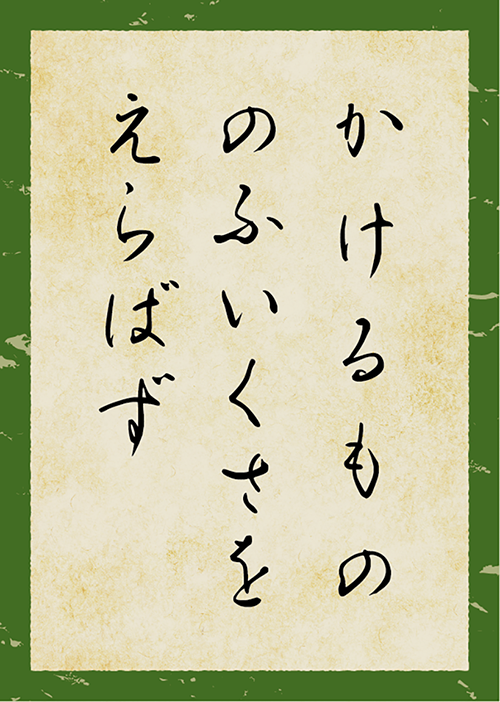 かけるもの
のふいくさを
えらばず